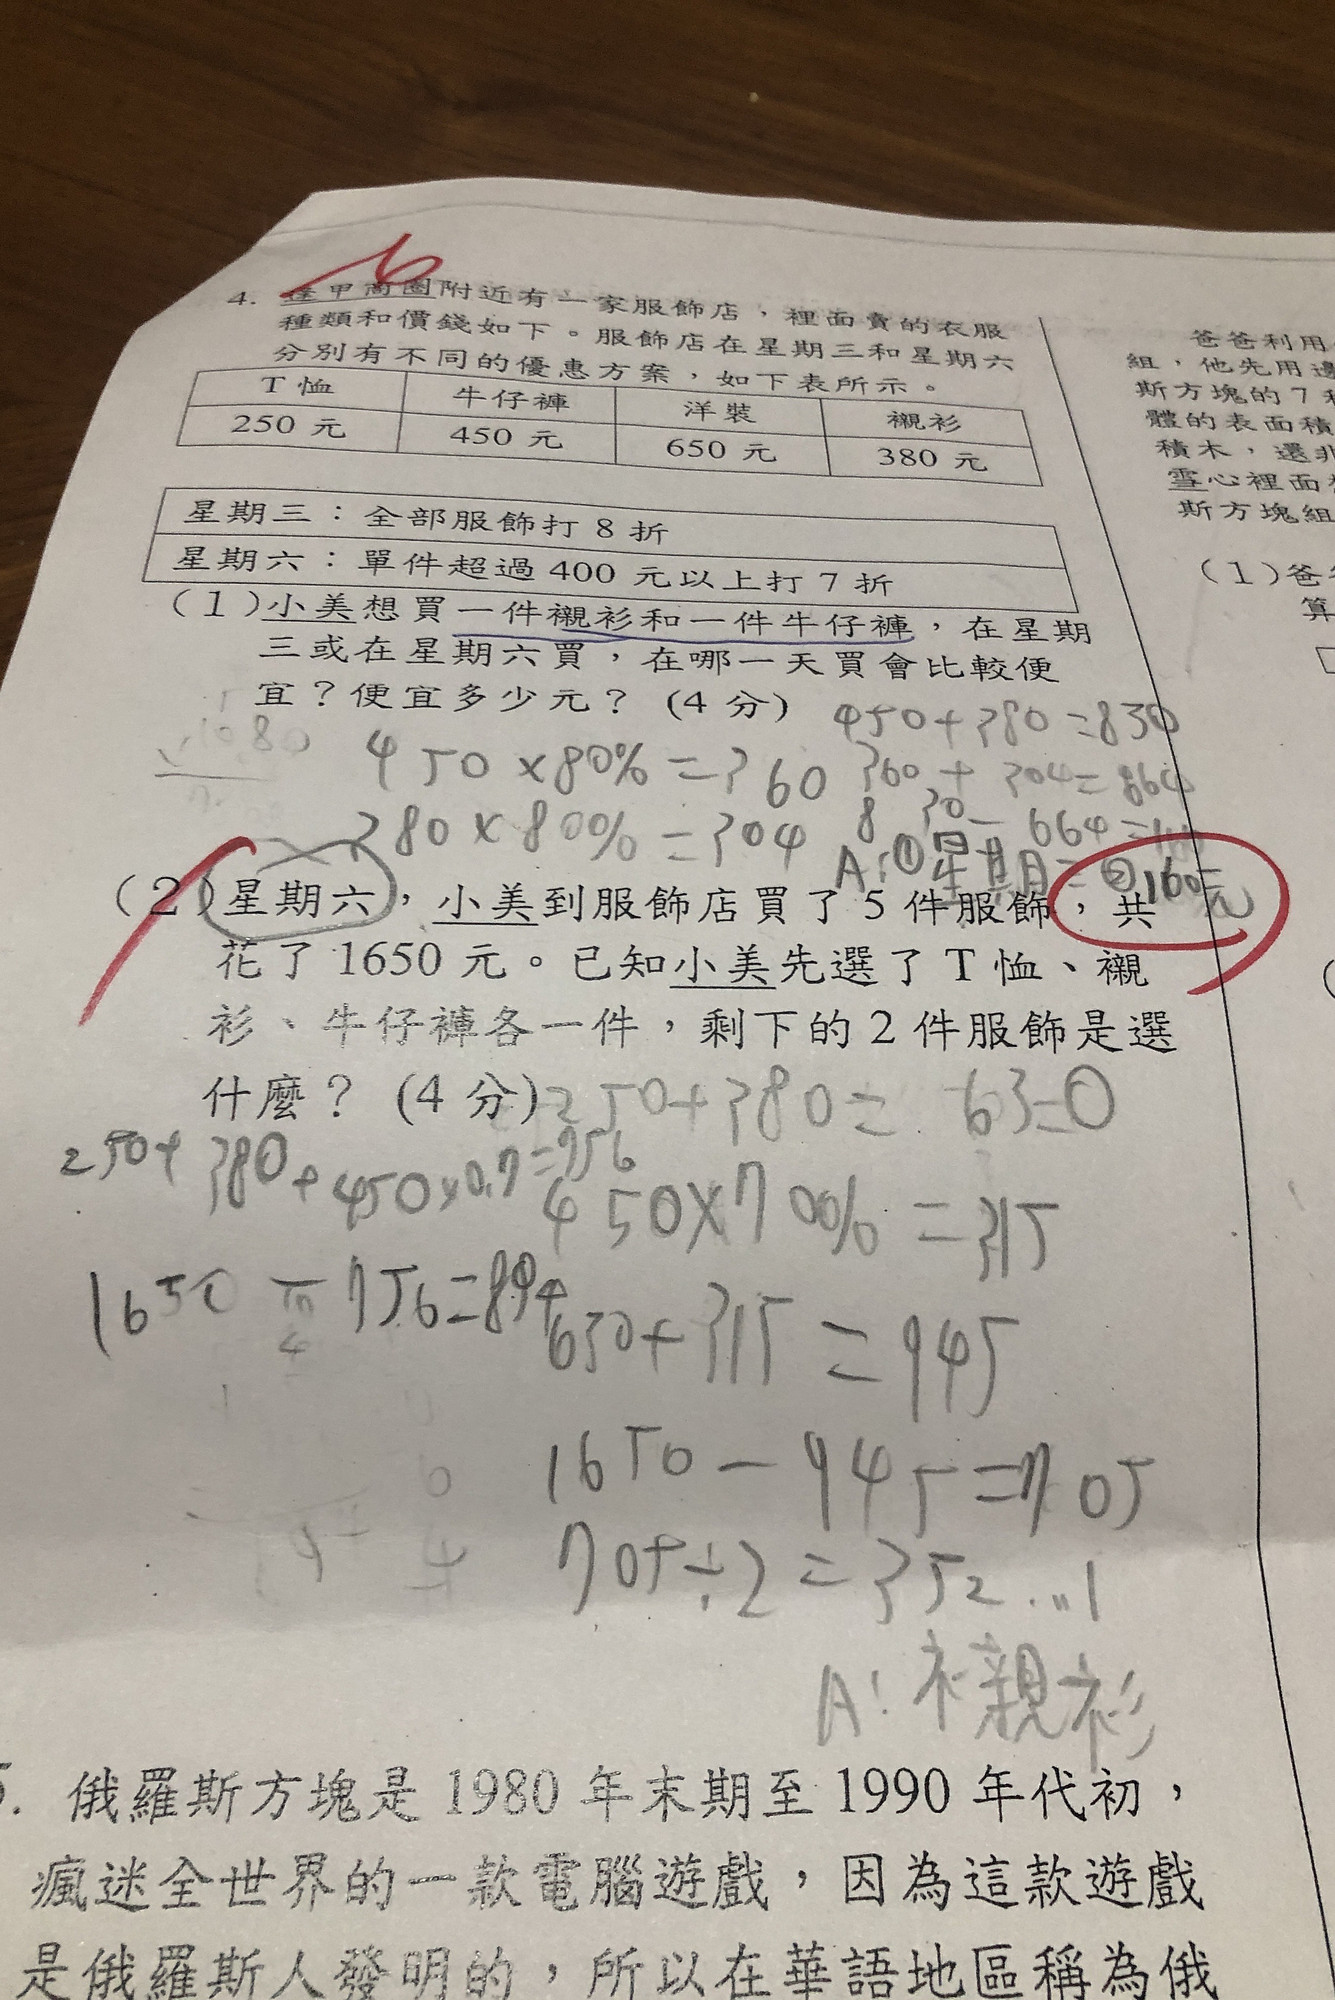 4. 逢甲商圈附近有一家服飾店，裡面賣的衣服
種類和價錢如下。服飾店在星期三和星期六
分別有不同的優惠方案，如下表所示。
T恤 牛仔褲 洋裝 襯衫
250元 450元 650元 380元
星期三：全部服飾打8折
星期六：單件超過400元以上打7折
(1)小美想買一件襯衫和一件牛仔褲，在星期
三或在星期六買，在哪一天買會比較便
宜？便宜多少元？(4分)
450+380=830
450×80%=360
360+304=664
380×80%=304
A:①星期三②160元
(2)星期六，小美到服飾店買了5件服飾，共
花了1650元。已知小美先選了T恤、襯
衫、牛仔褲各一件，剩下的2件服飾是選
什麼？(4分)
250+380=630
250+380+450×0.7=756
450×70%=315
1650-756=894
630+315=945
1650-945=705
705÷2=352...1
A:襯衫
俄羅斯方塊是1980年末期至1990年代初，
瘋迷全世界的一款電腦遊戲，因為這款遊戲
是俄羅斯人發明的，所以在華語地區稱為俄
爸爸利用
組，他先用
斯方塊的7
體的表面積
積木，還非
雪心裡面
斯方塊組
(1)爸
算